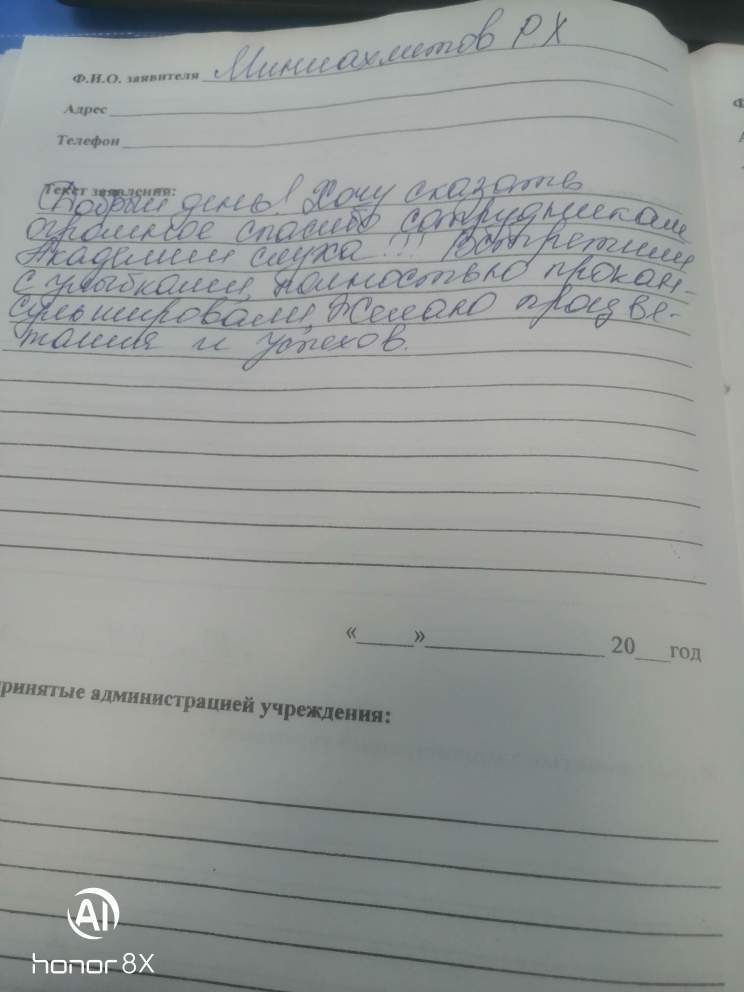 Ф.И.О. заявителя Миниахметов Р.Х
Адрес
Телефон
Текст заявления:
Добрый день! Хочу сказать
огромное спасибо сотрудникам
Академии слуха!!! Встретили
с улыбками, полностью прокан-
сультировали, Желаю процве-
тания и успехов.
«____»____________ 20___год
ринятые администрацией учреждения:
AI
honor 8X